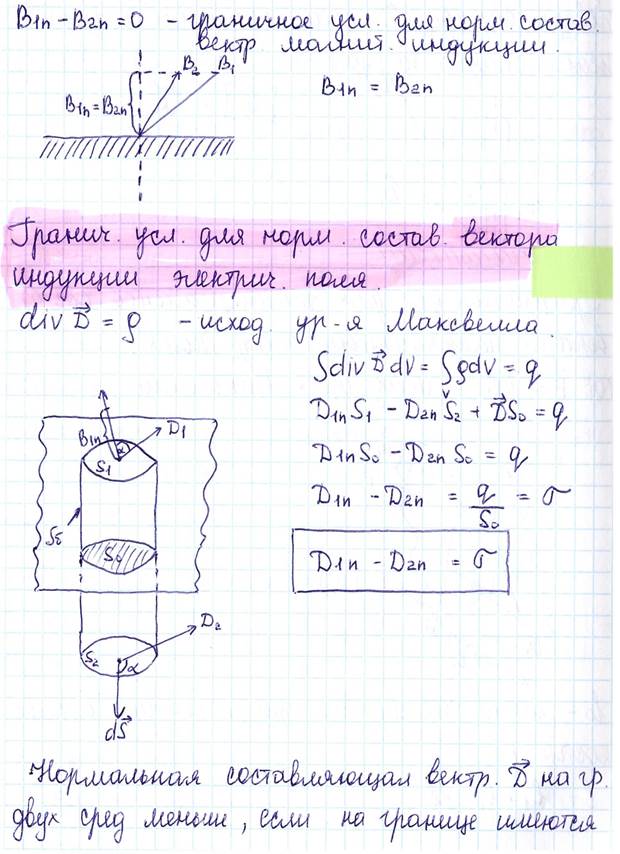 B1n - B2n = 0 - граничное усл. для норм. состав.
вектр магнит. индукции.
B2 B1
B1n = B2n
B1n = B2n
Гранич. усл. для норм. состав. вектора
индукции электрич. поля.
div D⃗ = ρ - исход. ур-я Максвелла.
∫div D⃗ dV = ∫ρdV = q
D1n S1 - D2n S2 + D⃗S₀ = q
D1n S₀ - D2n S₀ = q
D1n - D2n = q/S₀ = σ
D1n - D2n = σ
B1n
α
D1
S1
S₀
D2
S2
α
dS⃗
Нормальная составляющая вектр. D⃗ на гр.
двух сред меньше, если на границе имеются